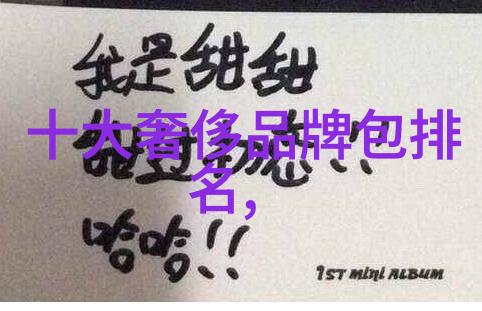 我是甜甜
十大奢侈品牌包排
名,
哈哈!!
1ST MINI ALBUM